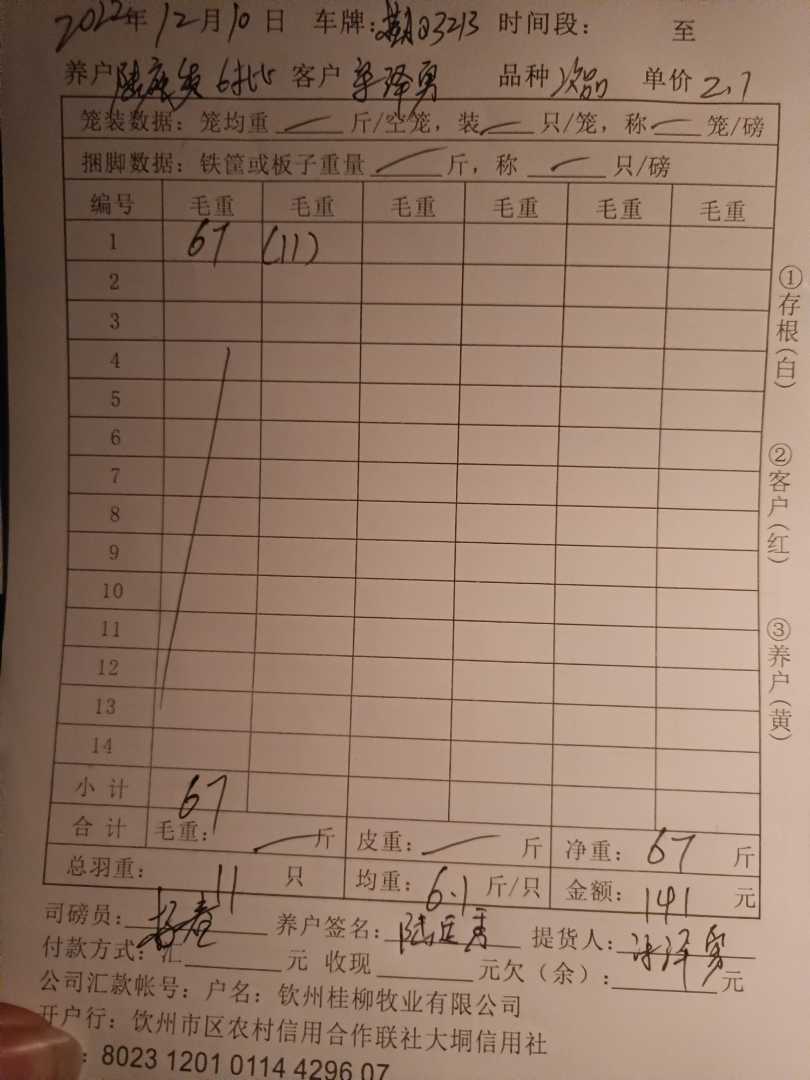 2022年12月10日 车牌: 03213 时间段: 至
养户 陆 6批 客户 梁泽勇 品种 次品 单价 2.1
笼装数据: 笼均重 斤/空笼, 装 只/笼, 称 笼/磅
捆脚数据: 铁筐或板子重量 斤, 称 只/磅
编号 毛重 毛重 毛重 毛重 毛重 毛重
1 67 (11)
2
3
4
5
6
7
8
9
10
11
12
13
14
小计 67
合计 毛重: 斤 皮重: 斤 净重: 67 斤
总羽重: 11 只 均重: 6.1 斤/只 金额: 141 元
司磅员: 养户签名: 陆 提货人: 泽勇
付款方式: 汇 元 收现 元欠(余): 元
公司汇款帐号: 户名: 钦州桂柳牧业有限公司
开户行: 钦州市区农村信用合作联社大垌信用社
: 8023 1201 0114 4296 07
①存根(白)
②客户(红)
③养户(黄)